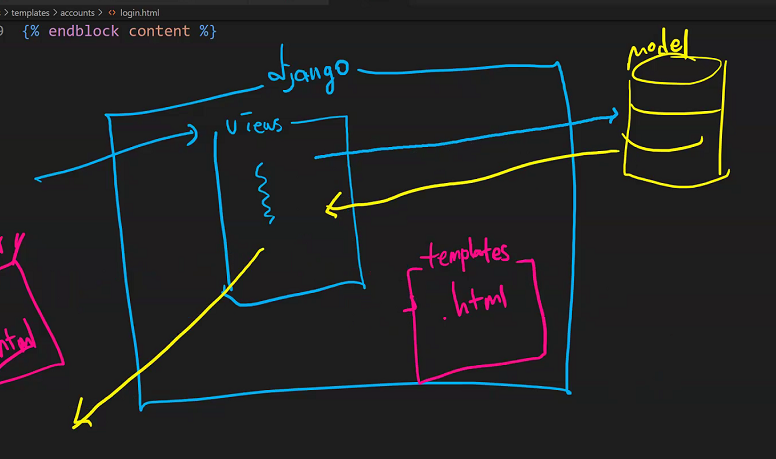 templates > accounts > <> login.html
9 {% endblock content %}
model
django
views
templates
.html
html